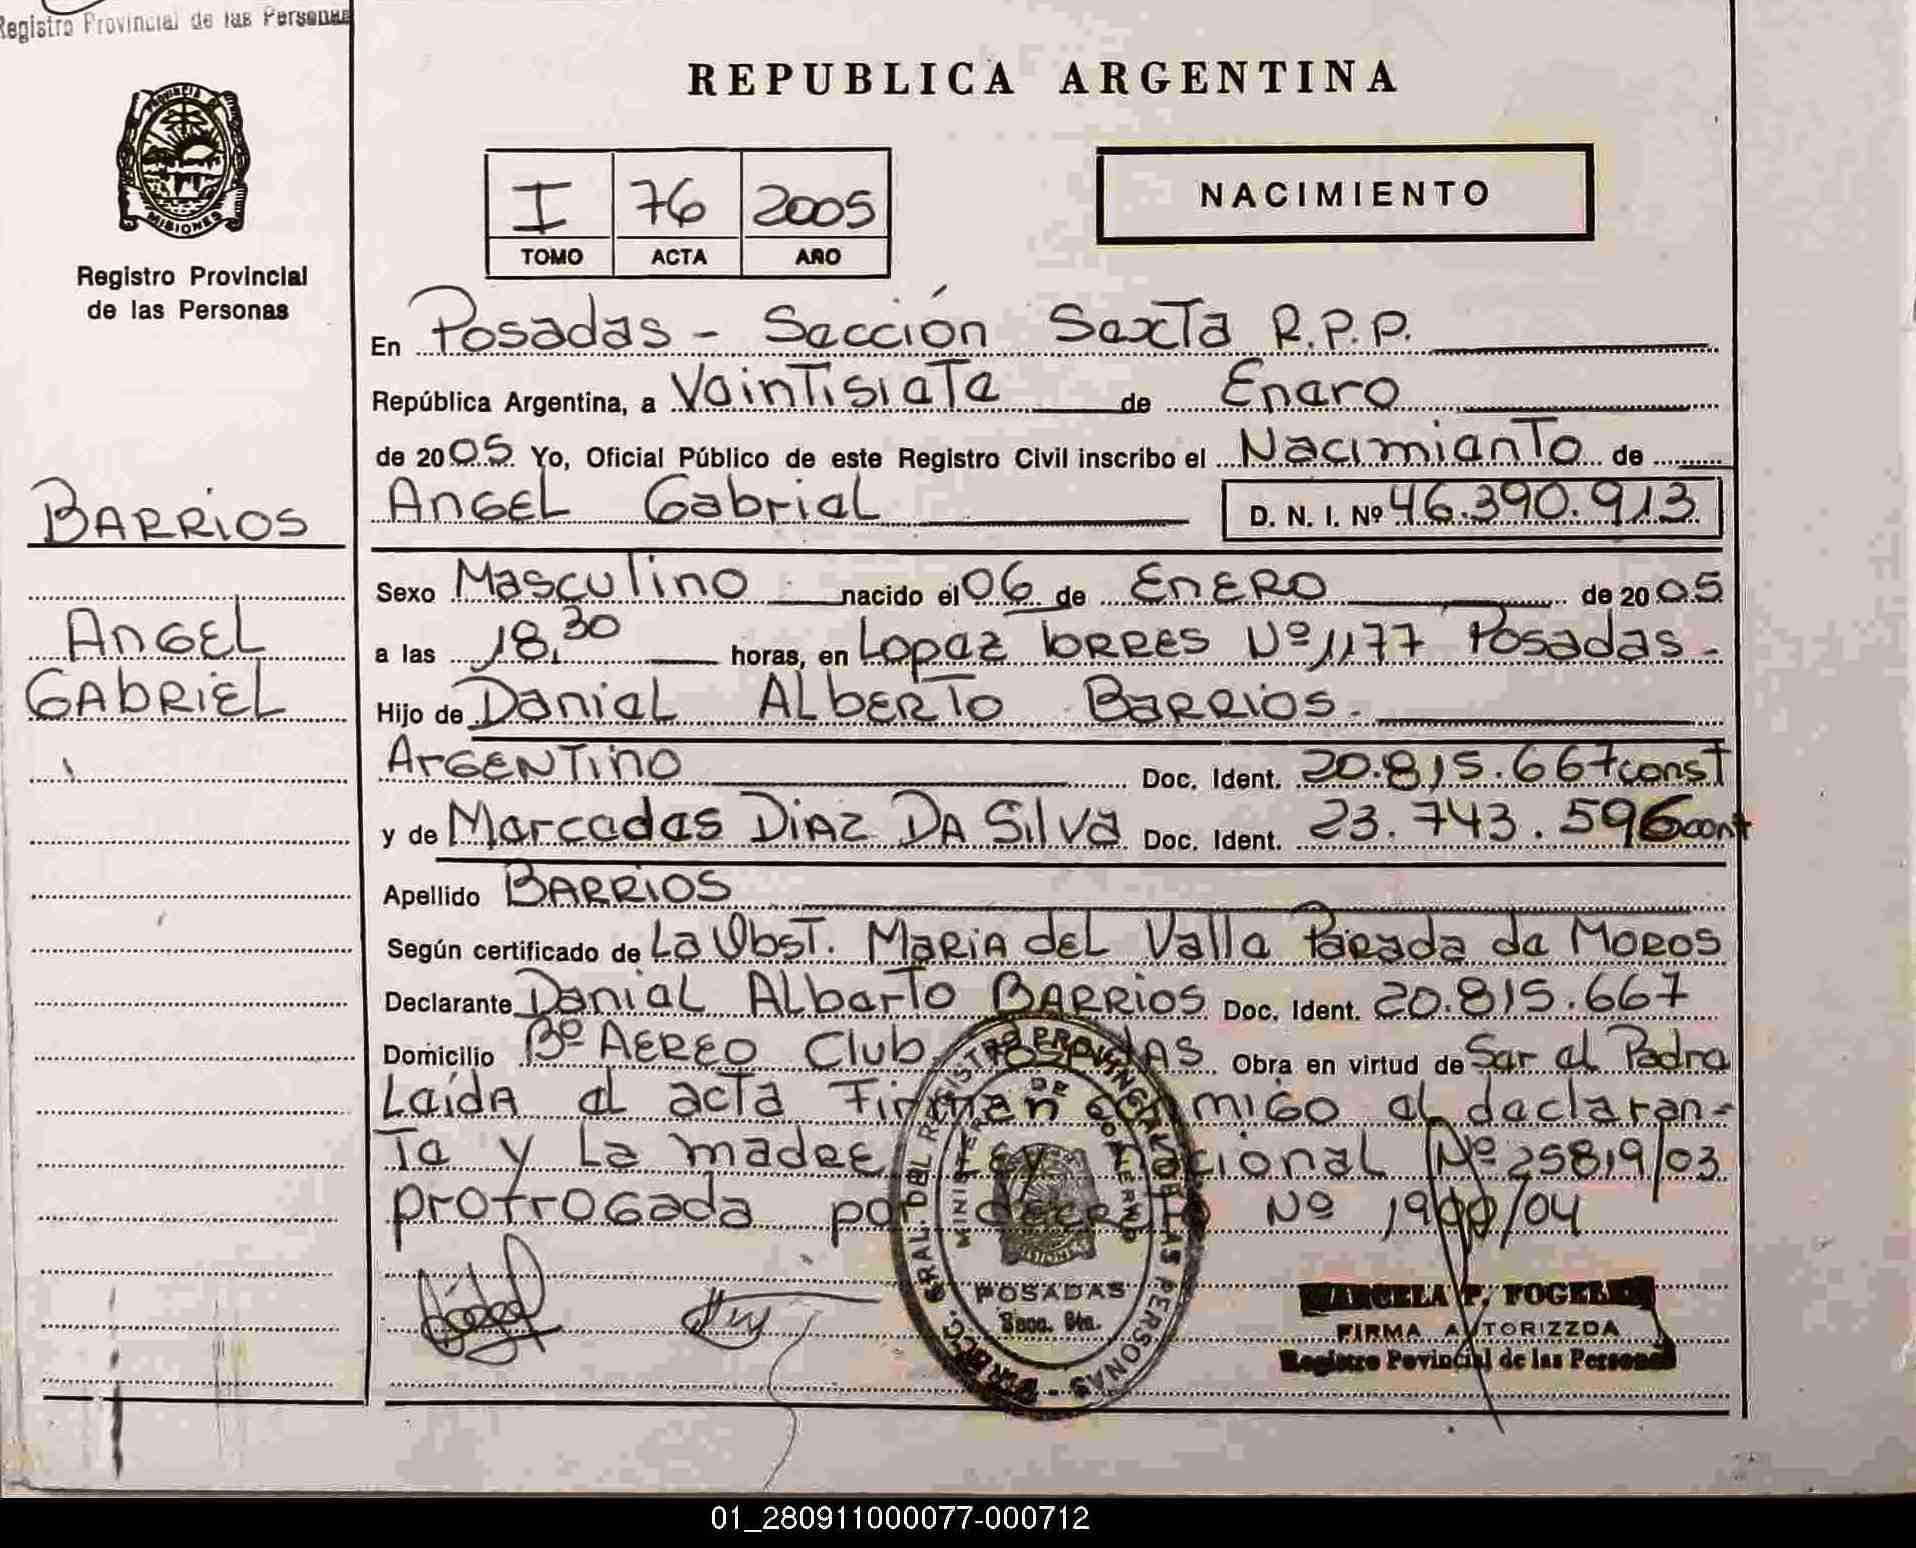 Registro Provincial de las Personas
PROVINCIA DE
MISIONES
Registro Provincial
de las Personas
BARRIOS
ANGEL
GABRIEL
REPUBLICA ARGENTINA
I 76 2005
TOMO ACTA AÑO
NACIMIENTO
En Posadas - Sección Sexta R.P.P.
República Argentina, a Veintisiete de Enero
de 2005 Yo, Oficial Público de este Registro Civil inscribo el Nacimiento de
ANGEL Gabriel D. N. I. Nº 46.390.913
Sexo Masculino nacido el 06 de ENERO de 2005
a las 18,30 horas, en Lopez TORRES Nº 1177 Posadas -
Hijo de Daniel ALBERTO BARRIOS.
ARGENTINO Doc. Ident. 20.815.667 const
y de Mercedes DIAZ DA Silva Doc. Ident. 23.743.596 const
Apellido BARRIOS
Según certificado de La Obst. MARIA del Valle Parada de MOROS
Declarante Daniel ALberto BARRIOS Doc. Ident. 20.815.667
Domicilio Bº AEREO Club. POSADAS Obra en virtud de Ser el Padre
Leída el acta Firman conmigo el declaran-
te y la madre. Ley nacional Nº 25819/03
protrogada por decreto Nº 1900/04
DIRECC. GRAL. DEL REGISTRO PROVINCIAL DE LAS PERSONAS
MINISTERIO DE GOBIERNO
MISIONES
POSADAS
Secc. 6ta.
MARCELA P. FOGELER
FIRMA AUTORIZZDA
Registro Povincial de las Personas
01_280911000077-000712